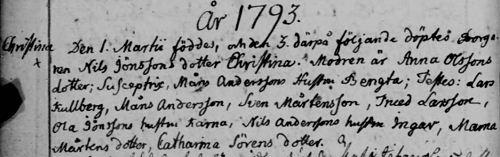 År 1793.
Christina Den 1. Martii föddes, och den 3. därpå följande döptes Borga-
ren Nils Jönssons dotter Christina. Modren är Anna Olssons
dotter; Susceptrix, Måns Anderssons Hustru Bengta; Testes: Lars
Kullberg, Måns Andersson, Sven Mårtensson, Larsson,
Ola Jönssons hustru Kärna, Nils Anderssons hustru Ingar, Marna
Mårtens dotter, Catharina Sörens dotter.